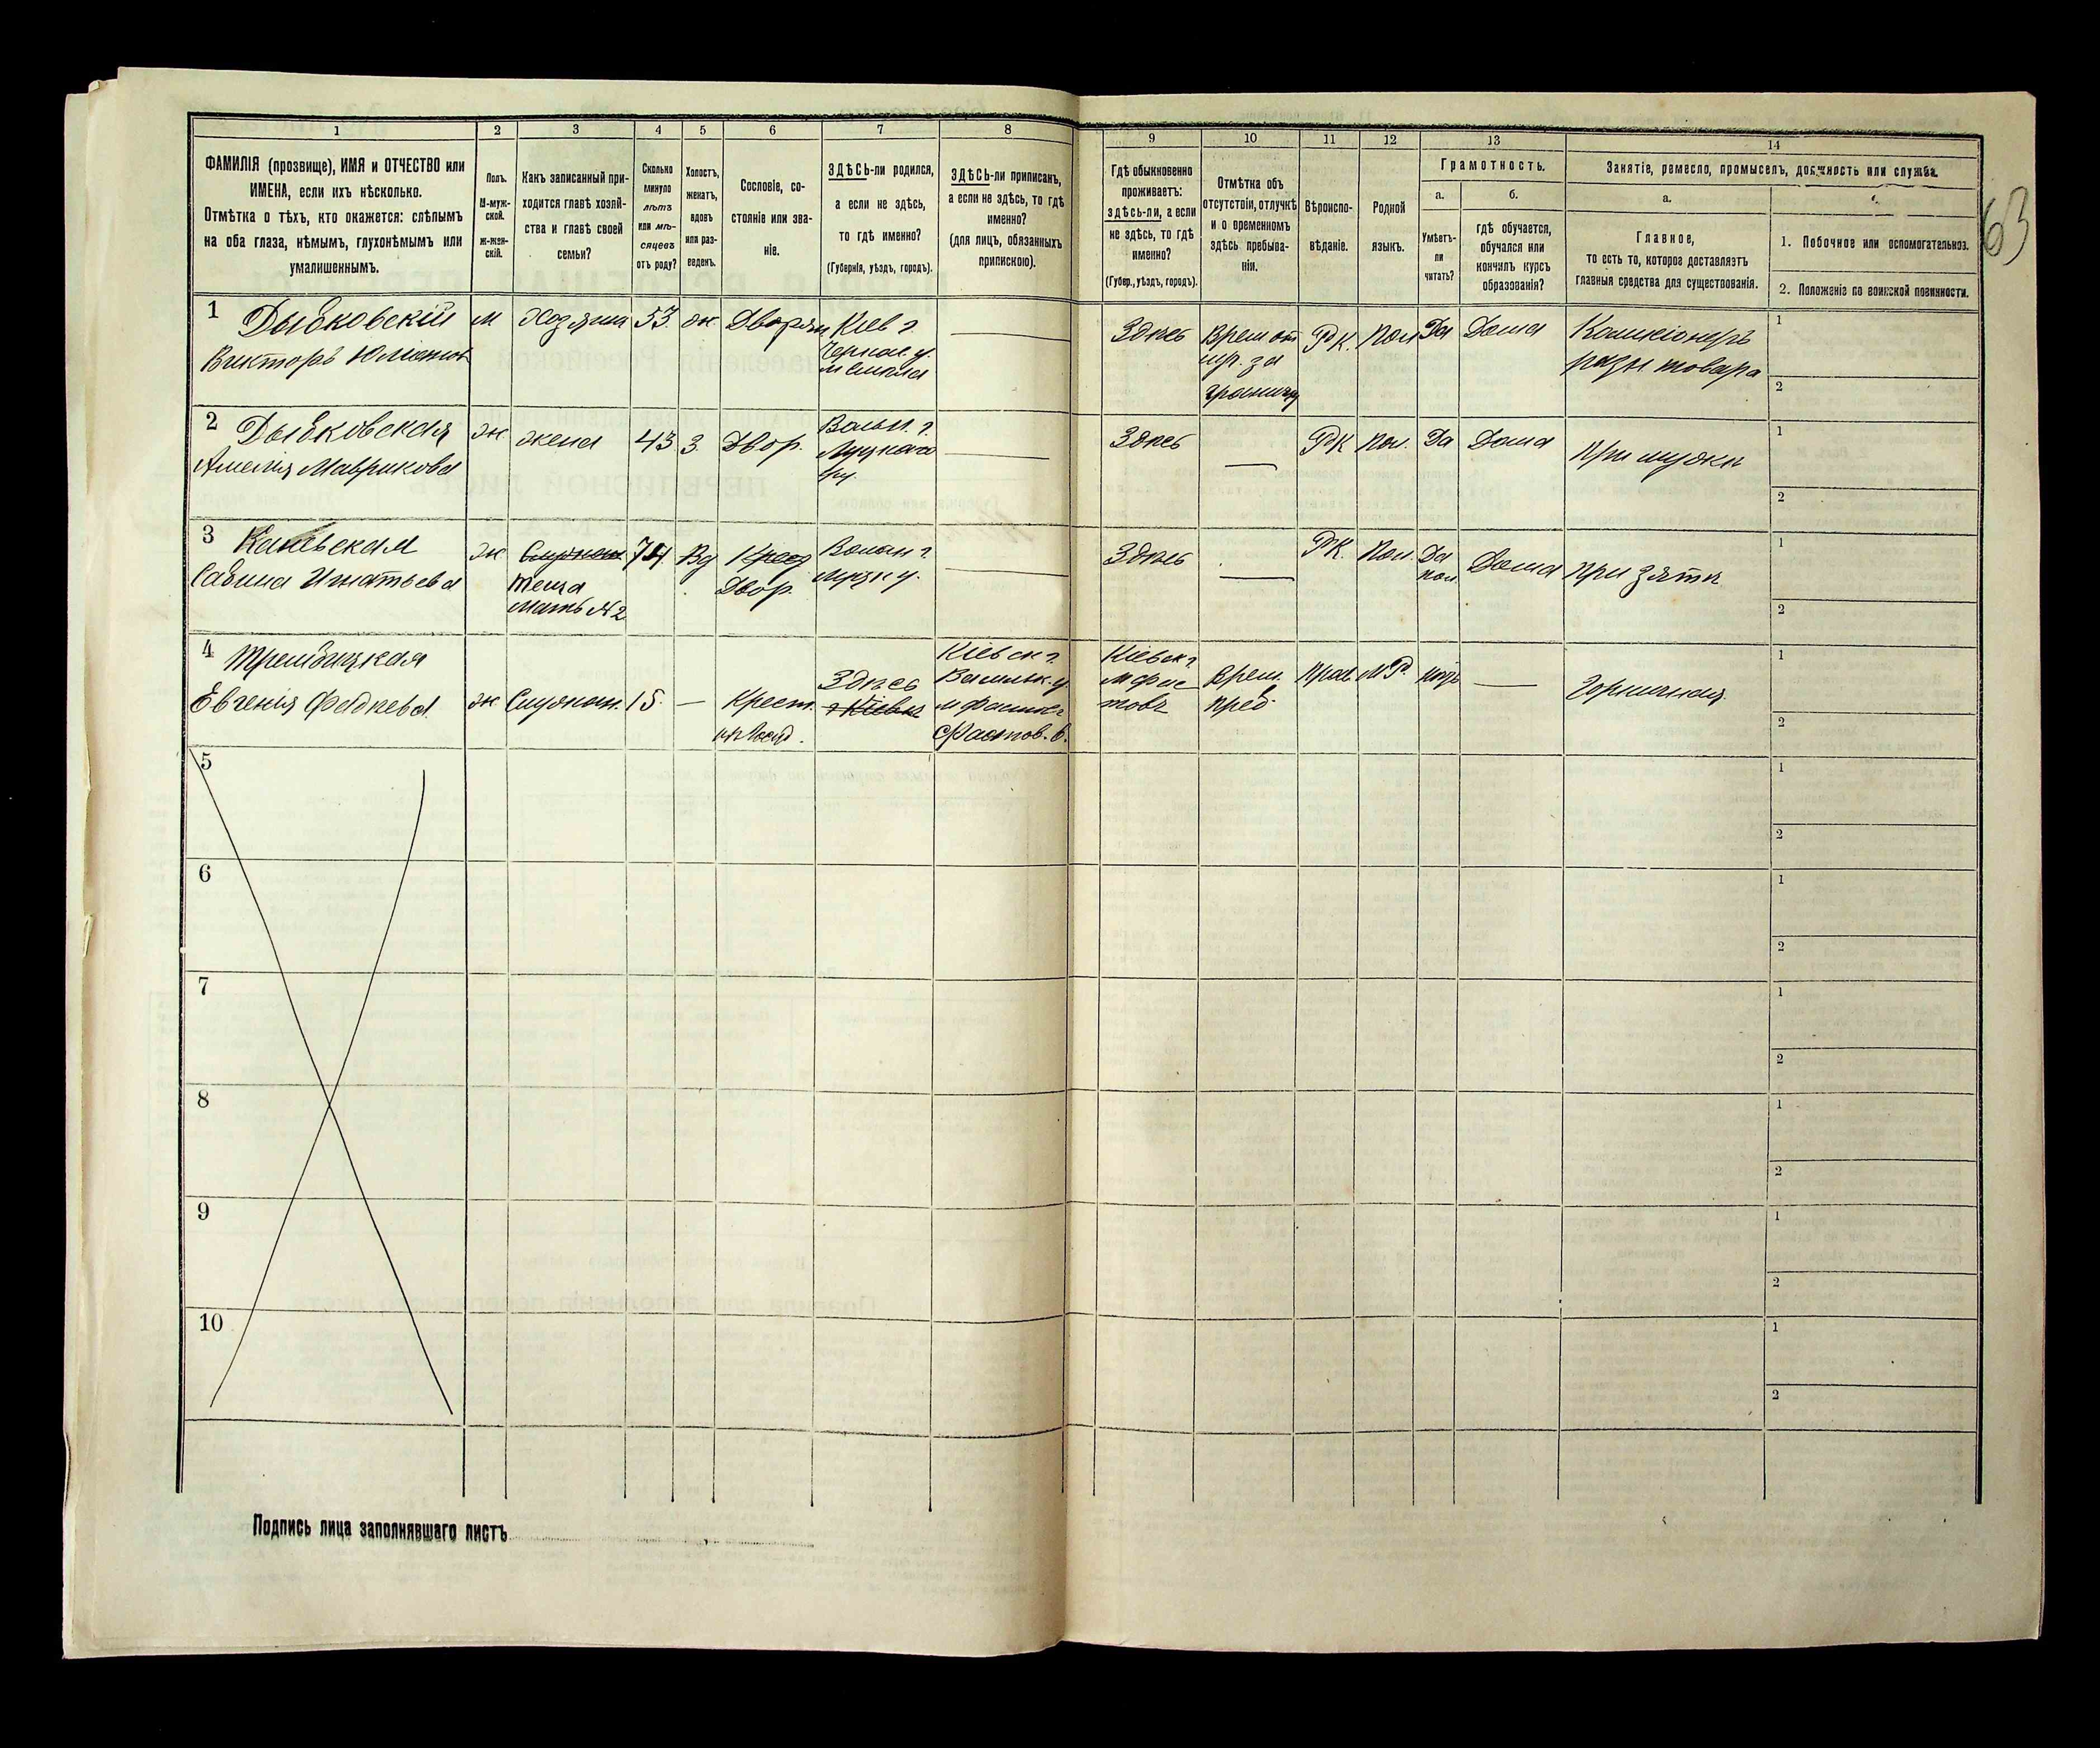 1 2 3 4 5 6 7 8 9 10 11 12 13 14
ФАМИЛІЯ (прозвище), ИМЯ и ОТЧЕСТВО или
ИМЕНА, если ихъ нѣсколько.
Отмѣтка о тѣхъ, кто окажется: слѣпымъ
на оба глаза, нѣмымъ, глухонѣмымъ или
умалишеннымъ.
Полъ.
М-муж-
ской.
ж-жен-
скій.
Какъ записанный при-
ходится главѣ хозяй-
ства и главѣ своей
семьи?
Сколько
минуло
лѣтъ
или мѣ-
сяцевъ
отъ роду?
Холостъ,
женатъ,
вдовъ
или раз-
веденъ.
Сословіе, со-
стояніе или зва-
ніе.
ЗДѢСЬ-ли родился,
а если не здѣсь,
то гдѣ именно?
(Губернія, уѣздъ, городъ).
ЗДѢСЬ-ли приписанъ,
а если не здѣсь, то гдѣ
именно?
(для лицъ, обязанныхъ
припискою).
Гдѣ обыкновенно
проживаетъ:
здѣсь-ли, а если
не здѣсь, то гдѣ
именно?
(Губер., уѣздъ, городъ).
Отмѣтка объ
отсутствіи, отлучкѣ
и о временномъ
здѣсь пребыва-
ніи.
Вѣроиспо-
вѣданіе.
Родной
языкъ.
Грамотность.
а.
Умѣетъ-
ли
читать?
б.
гдѣ обучается,
обучался или
кончилъ курсъ
образованія?
Занятіе, ремесло, промыселъ, должность или служба.
а.
Главное,
то есть то, которое доставляетъ
главныя средства для существованія.
1. Побочное или вспомогательное.
2. Положеніе по воинской повинности.
63
1 Дыбковскій
Викторъ Юліанов
м
Хозяинъ
53
ж
Дворян
Кіев г
Черкас. у.
м Смѣла
Здѣсь
Врем от
загр. за
границу
РК.
Пол
Да
Дома
Коммісіонеръ
разн товара
1
2
2 Дыбковская
Амелія Маврикова
ж
жена
43
З.
Двор.
Волын. г.
Луцкаго
у.
Здѣсь
РК
Пол.
Да
Дома
При мужѣ
1
2
3
Сабина Игнатьева
ж
теща
мать № 2
74
Вд
Двор.
Волын г
Луцк у.
Здѣсь
РК.
Пол.
Да
пол.
Дома
при зятѣ
1
2
4 Трембицкая
Евгенія Фадѣева
ж
Служан.
15
—
Крест.
Здѣсь
Кіевск г.
Васильк. у.
м Фастов
Фастов. в.
Кіевск г
м Фас
товъ
Врем.
преб.
Прав
МР.
нѣтъ
—
Горничная
1
2
5
1
2
6
1
2
7
1
2
8
1
2
9
1
2
10
1
2
Подпись лица заполнявшаго листъ